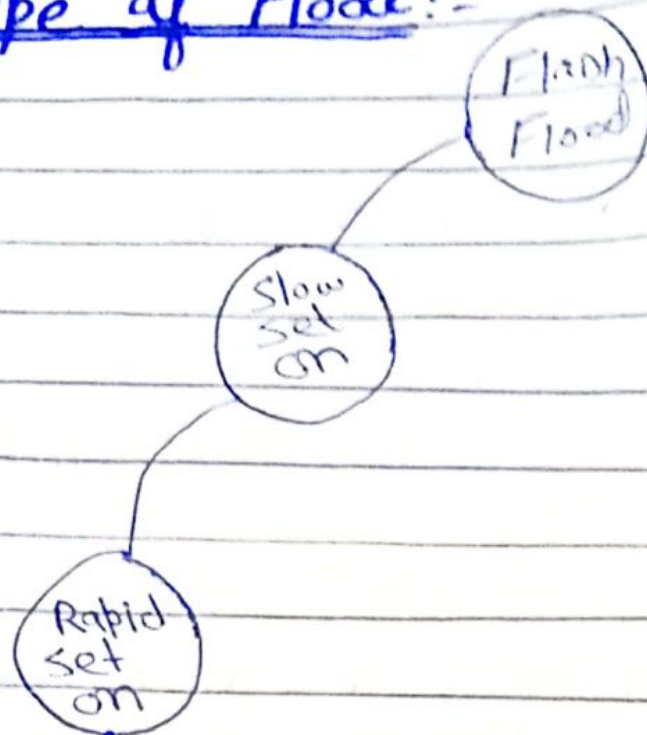 pe of Flood:-
Flash
Flood
Slow
set
on
Rapid
set
on